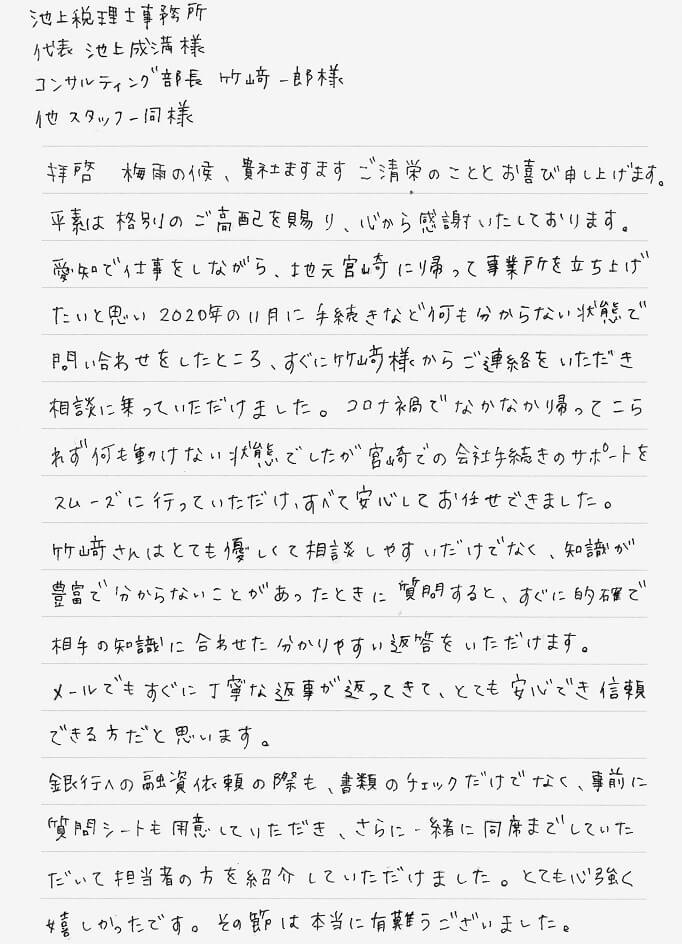 池上税理士事務所
代表 池上成満様
コンサルティング部長 竹﨑一郎様
他スタッフ一同様
拝啓 梅雨の候、貴社ますますご清栄のこととお喜び申し上げます。
平素は格別のご高配を賜り、心から感謝いたしております。
愛知で仕事をしながら、地元宮崎に帰って事業所を立ち上げ
たいと思い2020年の11月に手続きなど何も分からない状態で
問い合わせをしたところ、すぐに竹﨑様からご連絡をいただき
相談に乗っていただけました。コロナ禍でなかなか帰ってこら
れず何も動けない状態でしたが宮崎での会社手続きのサポートを
スムーズに行っていただけ、すべて安心してお任せできました。
竹﨑さんはとても優しくて相談しやすいだけでなく、知識が
豊富で分からないことがあったときに質問すると、すぐに的確で
相手の知識に合わせた分かりやすい返答をいただけます。
メールでもすぐに丁寧な返事が返ってきて、とても安心でき信頼
できる方だと思います。
銀行への融資依頼の際も、書類のチェックだけでなく、事前に
質問シートも用意していただき、さらに一緒に同席までしていた
だいて担当者の方を紹介していただけました。とても心強く
嬉しかったです。その節は本当に有難うございました。